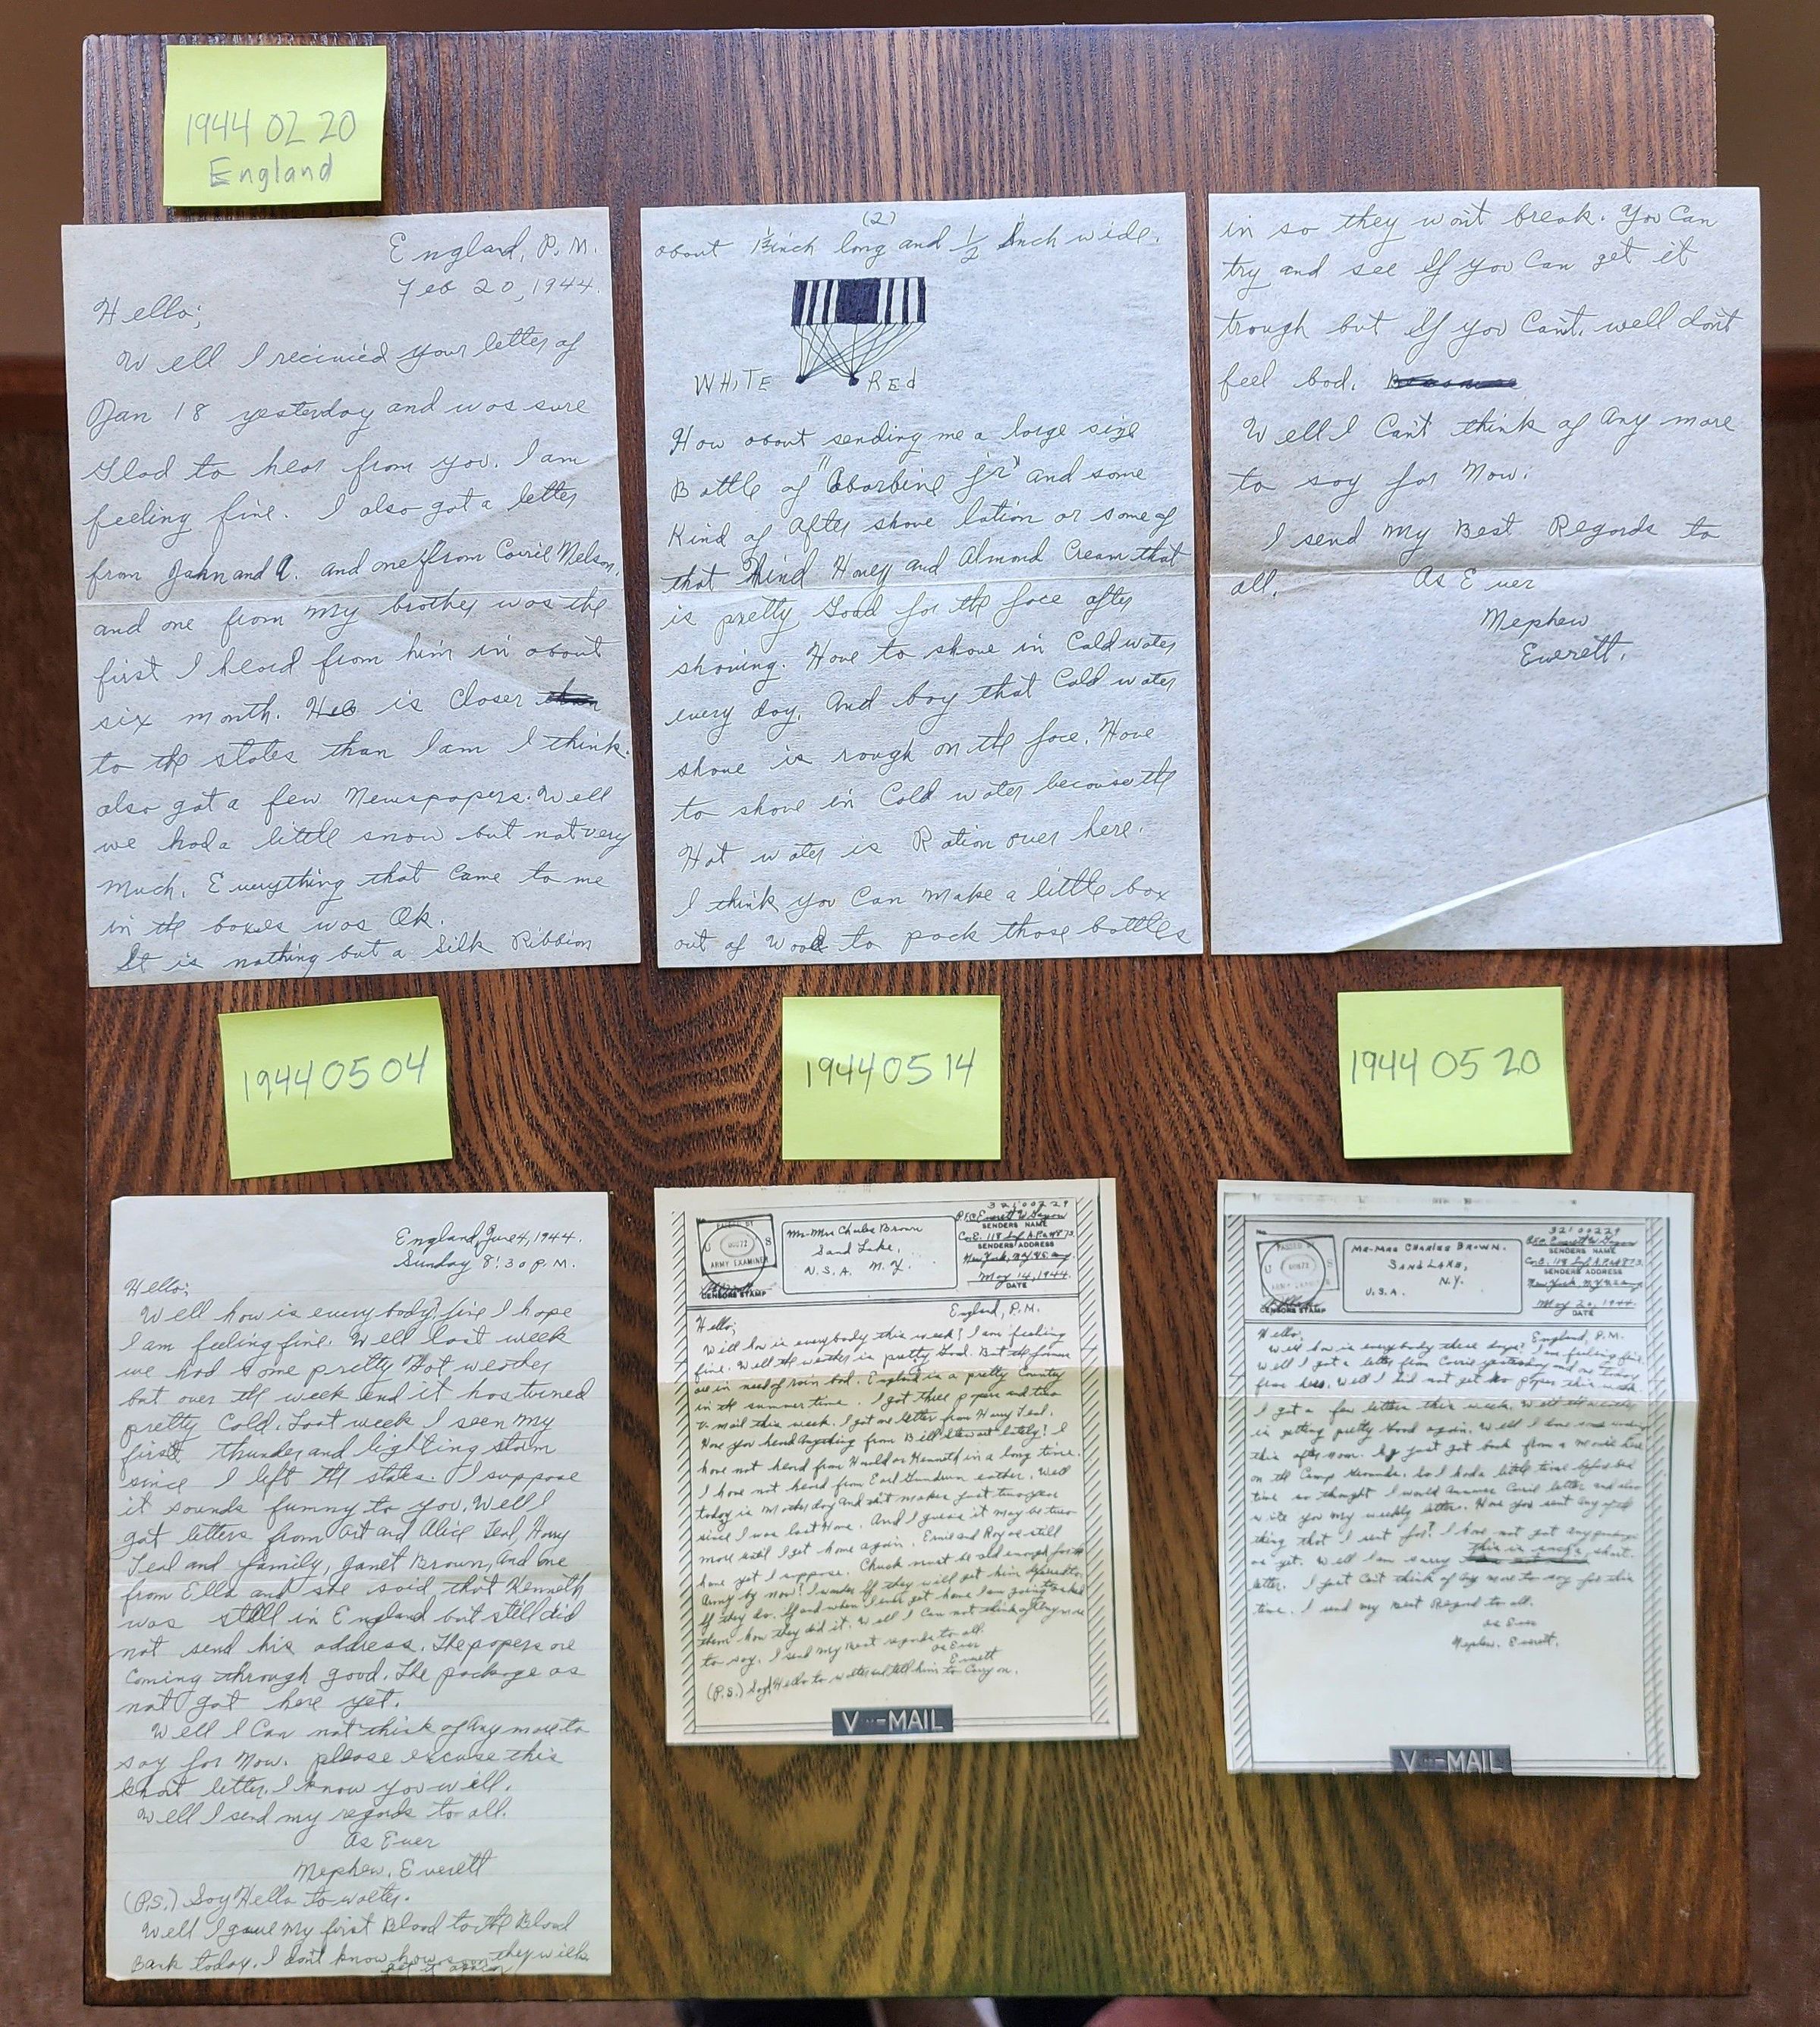 1944 02 20
England
England, P.M.
Feb 20, 1944.
Hello;
Well I recivied your letter of
Jan 18 yesterday and was sure
Glad to hear from you. I am
feeling fine. I also got a letter
from John and A. and one from Corrie Nelson,
and one from my brother was the
first I heard from him in about
six month. He is Closer
to the states than I am I think.
also got a few Newspapers. Well
we had a little snow but not very
much. Everything that Came to me
in the boxes was Ok.
It is nothing but a Silk Ribbion
(2)
about 1½ inch long and ½ Inch wide.
WHiTE REd
How about sending me a large size
Bottle of "Absorbine jr" and some
Kind of after shave lation or some of
that Hind Honey and Almond Cream that
is pretty Good for the face after
shaving. Have to shave in Cold water
every day. And boy that Cold water
shave is rough on the face. Have
to shave in Cold water because the
Hot water is Ration over here.
I think you Can make a little box
out of wood to pack those bottles
in so they won't break. You Can
try and see If you Can get it
trough but If you Can't. well don't
feel bad.
Well I Can't think of Any more
to say for Now.
I send My Best Regards to
all. As Ever
Nephew
Everett.
1944 05 04
1944 05 14
1944 05 20
England, June 4, 1944.
Sunday 8:30 P.M.
Hello;
Well how is everybody? fine I hope
I am feeling fine. Well last week
we had some pretty Hot weather
but over the week end it has turned
pretty Cold. Last week I seen My
first thunder and lighting storm
since I left the states. I suppose
it sounds funny to you. Well I
got letters from Art and Alice Teal, Harry
Teal and family, Janet Brown, And one
from Ella and she said that Kenneth
was still in England but still did
not send his address. The papers are
Coming through good. The package as
not got here yet.
Well I Can not think of Any more to
say for Now. please excuse this
short letter. I know you will.
Well I send my regards to all.
As Ever
Nephew, Everett
(P.S.) Say Hello to walter.
Well I gave My first Blood to the Blood
Bank today. I don't know how soon they will
PASSED BY
U S
ARMY EXAMINER
CENSORS STAMP
Mr-Mrs Charles Brown
Sand Lake,
U.S.A. N.Y.
32100229
PFC Everett W.
SENDERS NAME
Co.E. 118 Inf A.P.O. 873.
SENDERS ADDRESS
New York, N.Y.
May 14, 1944.
DATE
England, P.M.
Hello;
Well how is everybody this week? I am feeling
fine. Well the weather is pretty Good. But the farmers
are in need of rain bad. England is a pretty Country
in the summer time. I got three papers and two
V-mail this week. I got one letter from Harry Teal.
Have you heard Anything from Bill Stewart lately? I
have not heard from Harold or Kenneth in a long time.
I have not heard from Earl eather. Well
today is Mother day and it makes just two year
since I was last Home. And I guess it may be two
more until I get home again. Ernie and Roy are still
home yet I suppose. Chuck must be old enough for the
Army by now? I wonder If they will get him
If they do. If and when I ever get home I am going to ask
them how they did it. Well I Can not think of Any more
to say. I send My Best regards to all.
As Ever
Everett
(P.S.) Say Hello to walter and tell him to Carry on.
V -MAIL
PASSED BY
U S
ARMY EXAMINER
CENSORS STAMP
MR-MRS CHARLES BROWN.
SAND LAKE,
N.Y.
U.S.A.
32100229
PFC. Everett W.
SENDERS NAME
Co.E. 118 Inf A.P.O. 873.
SENDERS ADDRESS
New York, N.Y.
May 20, 1944.
DATE
England, P.M.
Hello;
Well how is everybody these days? I am feeling fine.
Well I got a letter from Corrie yesterday and one today
from
I got a few letters this week. Well the weather
is getting pretty Good again. Well I
this afternoon. just got back from a movie here
on the Camp Grounds. So I had a little time before bed
time so thought I would Answer Corrie letter and also
write you My weekly letter. Have you sent Any of the
thing that I sent for? I have not got Any package
as yet. Well I am sorry this is such a short
letter. I just Can't think of Any more to say for this
time. I send my Best Regard to all.
As Ever
Nephew. Everett.
V -MAIL